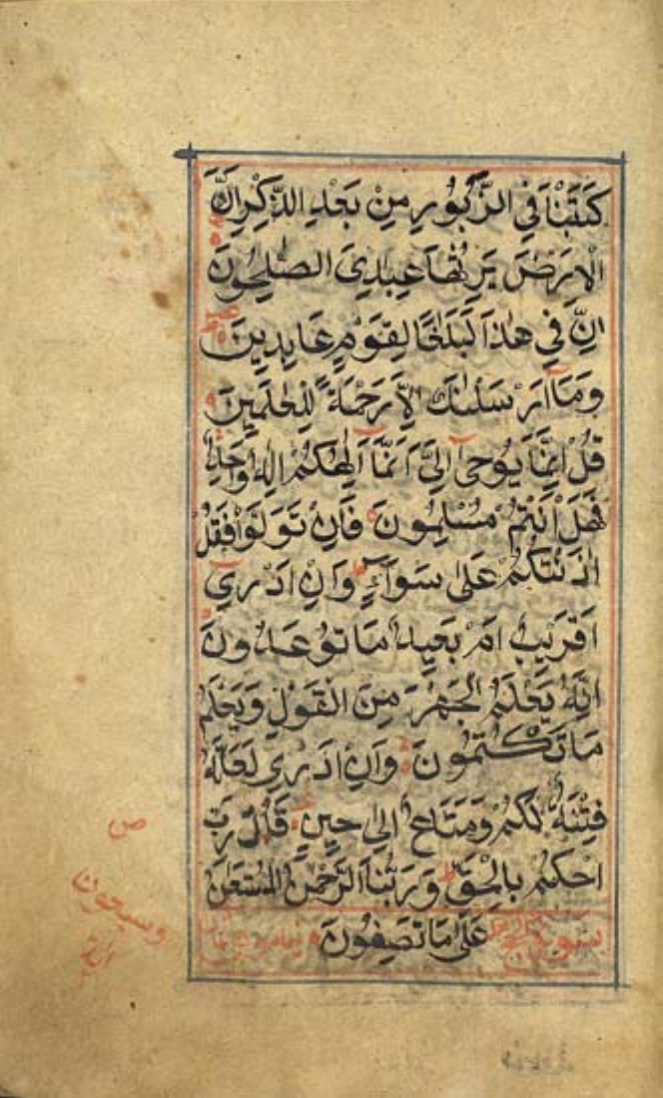 كَتَبْنَا فِي الزَّبُورِ مِنْ بَعْدِ الذِّكْرِ اَنَّ
الْاَرْضَ يَرِثُهَا عِبَادِىَ الصّٰلِحُونَ
اِنَّ فِي هٰذَا لَبَلٰغًا لِقَوْمٍ عَابِدِينَ
وَمَآ اَرْسَلْنٰكَ اِلَّا رَحْمَةً لِلْعٰلَمِينَ
قُلْ اِنَّمَا يُوحىٰٓ اِلَىَّ اَنَّمَآ اِلٰهُكُمْ اِلٰهٌ وَاحِدٌ
فَهَلْ اَنْتُمْ مُسْلِمُونَ فَاِنْ تَوَلَّوْا فَقُلْ
اٰذَنْتُكُمْ عَلىٰ سَوَآءٍ وَاِنْ اَدْرِيٓ
اَقَرِيبٌ اَمْ بَعِيدٌ مَا تُوعَدُونَ
اِنَّهُ يَعْلَمُ الْجَهْرَ مِنَ الْقَوْلِ وَيَعْلَمُ
مَا تَكْتُمُونَ وَاِنْ اَدْرِي لَعَلَّهُ
فِتْنَةٌ لَكُمْ وَمَتَاعٌ اِلىٰ حِينٍ قَالَ رَبِّ
احْكُمْ بِالْحَقِّ وَرَبُّنَا الرَّحْمٰنُ الْمُسْتَعَانُ
سورة الحج عَلىٰ مَا تَصِفُونَ
ص